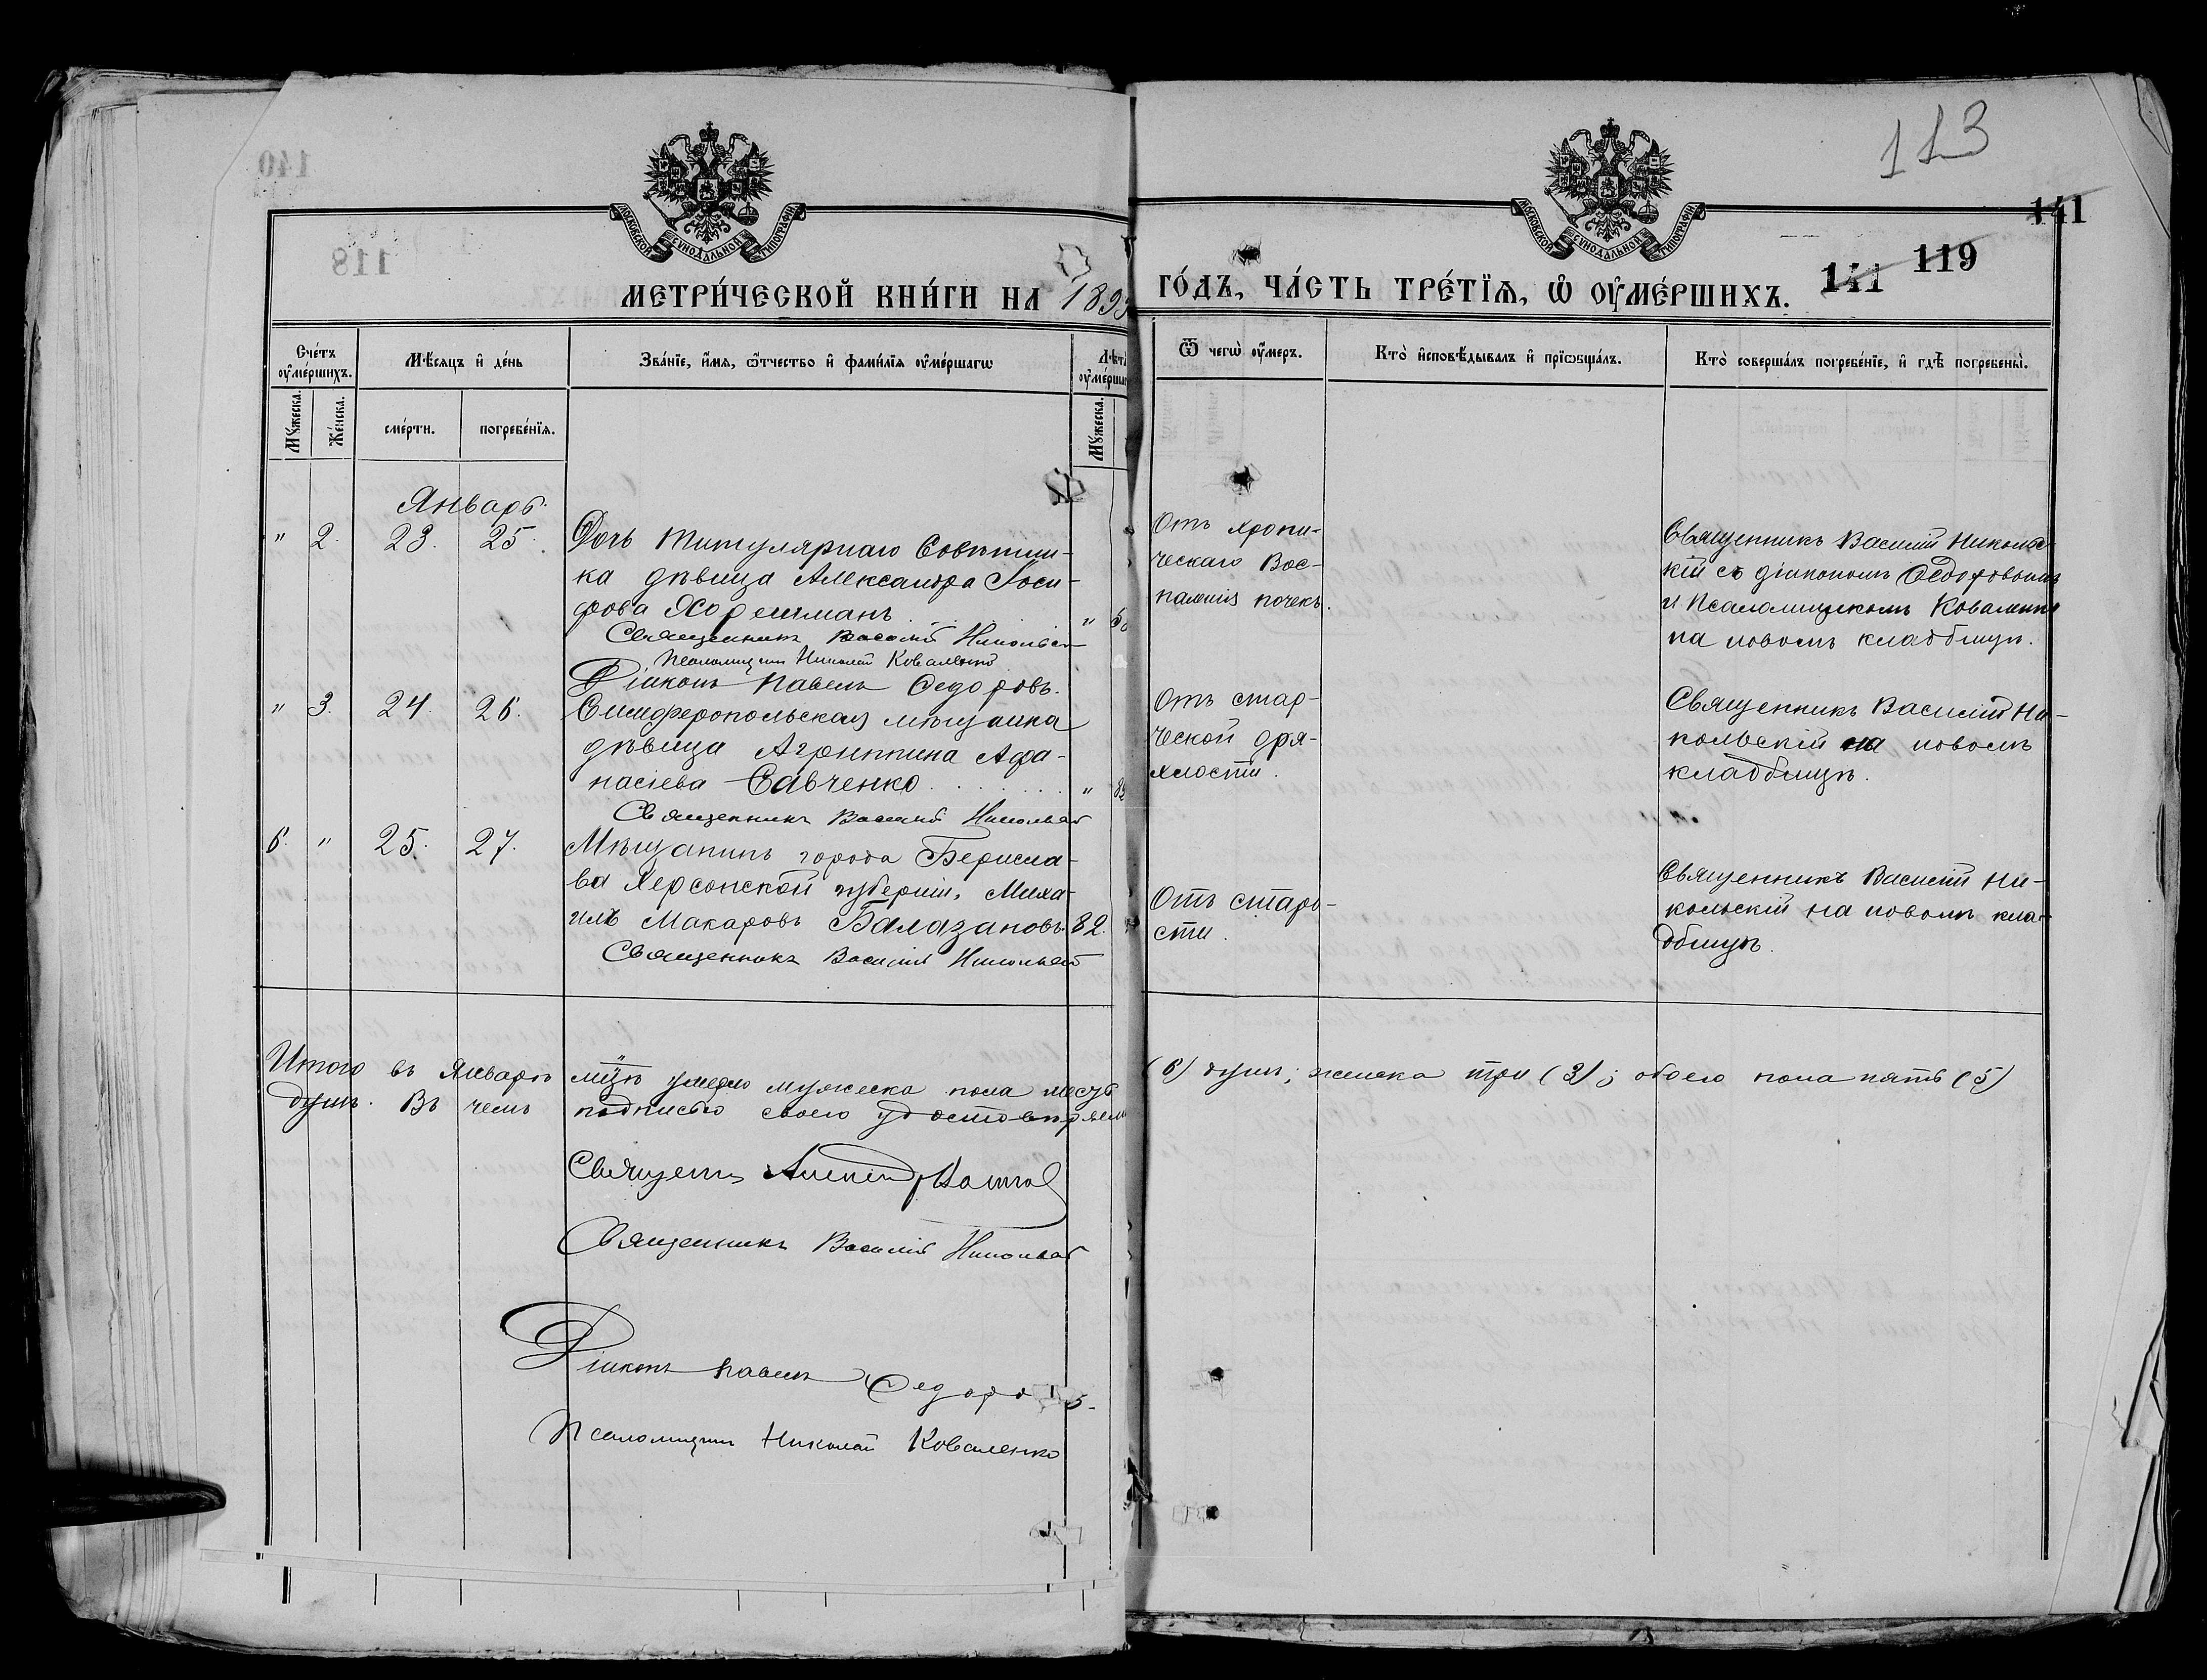 113
141
141 119
МОСКОВСКОЙ СУНОДАЛЬНОЙ ТИПОГРАФІИ
МОСКОВСКОЙ СУНОДАЛЬНОЙ ТИПОГРАФІИ
МЕТРИ́ЧЕСКОЙ КНИ́ГИ НА 1895 ГО́ДЪ, ЧА́СТЬ ТРЕ́ТІЯ, Ѡ ОУМЕ́РШИХЪ.
Сче́тъ оуме́ршихъ.
Мѣ́сяцъ и де́нь
Зва́нїе, и́мя, ѻ́тчество и фами́лїя оуме́ршагѡ
Лѣта оумерша
Ѿ чегѡ̀ оу́меръ.
Кто̀ исповѣ́дывалъ и прїѡбща́лъ.
Кто̀ соверша́лъ погребе́нїе, и гдѣ̀ погребены̀.
Мꙋ́жеска.
Же́нска.
сме́рти.
погребе́нїя.
Мꙋ́жеска.
Январь.
" 2. 23. 25. Дочь Титулярнаго Совѣтни-
ка дѣвица Александра Іоси-
фова . . . "
Священникъ Василій Никольск
Псаломщикъ Николай Коваленко
Діаконъ Павелъ Федоровъ.
Отъ хрони-
ческаго Вос-
паленія почекъ.
Священникъ Василій Николь-
кій съ діакономъ Федоровымъ
и Псаломщикомъ Коваленко
на новомъ кладбищѣ.
" 3. 24. 26. Симферопольская мѣщанка
дѣвица Агрипина Афа-
насіева Савченко . . . . . . . "
Священникъ Василій Никольскій
Отъ стар-
ческой дря-
хлости.
Священникъ Василій Ни-
кольскій на новомъ
кладбищѣ.
6. " 25. 27. Мѣщанинъ города Берисла-
ва Херсонской губерніи, Миха-
илъ Макаровъ Балазановъ. 82.
Священникъ Василій Никольскій
Отъ старо-
сти.
Священникъ Василій Ни-
кольскій на новомъ кла-
дбищѣ.
Итого въ Январѣ м̃цѣ умерло мужеска пола шесть (6) душъ; женска три (3); обоего пола пять (5)
душъ. Въ чемъ подписью своею удостовѣряемъ
Священникъ
Священникъ Василій Никольскій
Діаконъ Павелъ Федоровъ.
Псаломщикъ Николай Коваленко
140
118